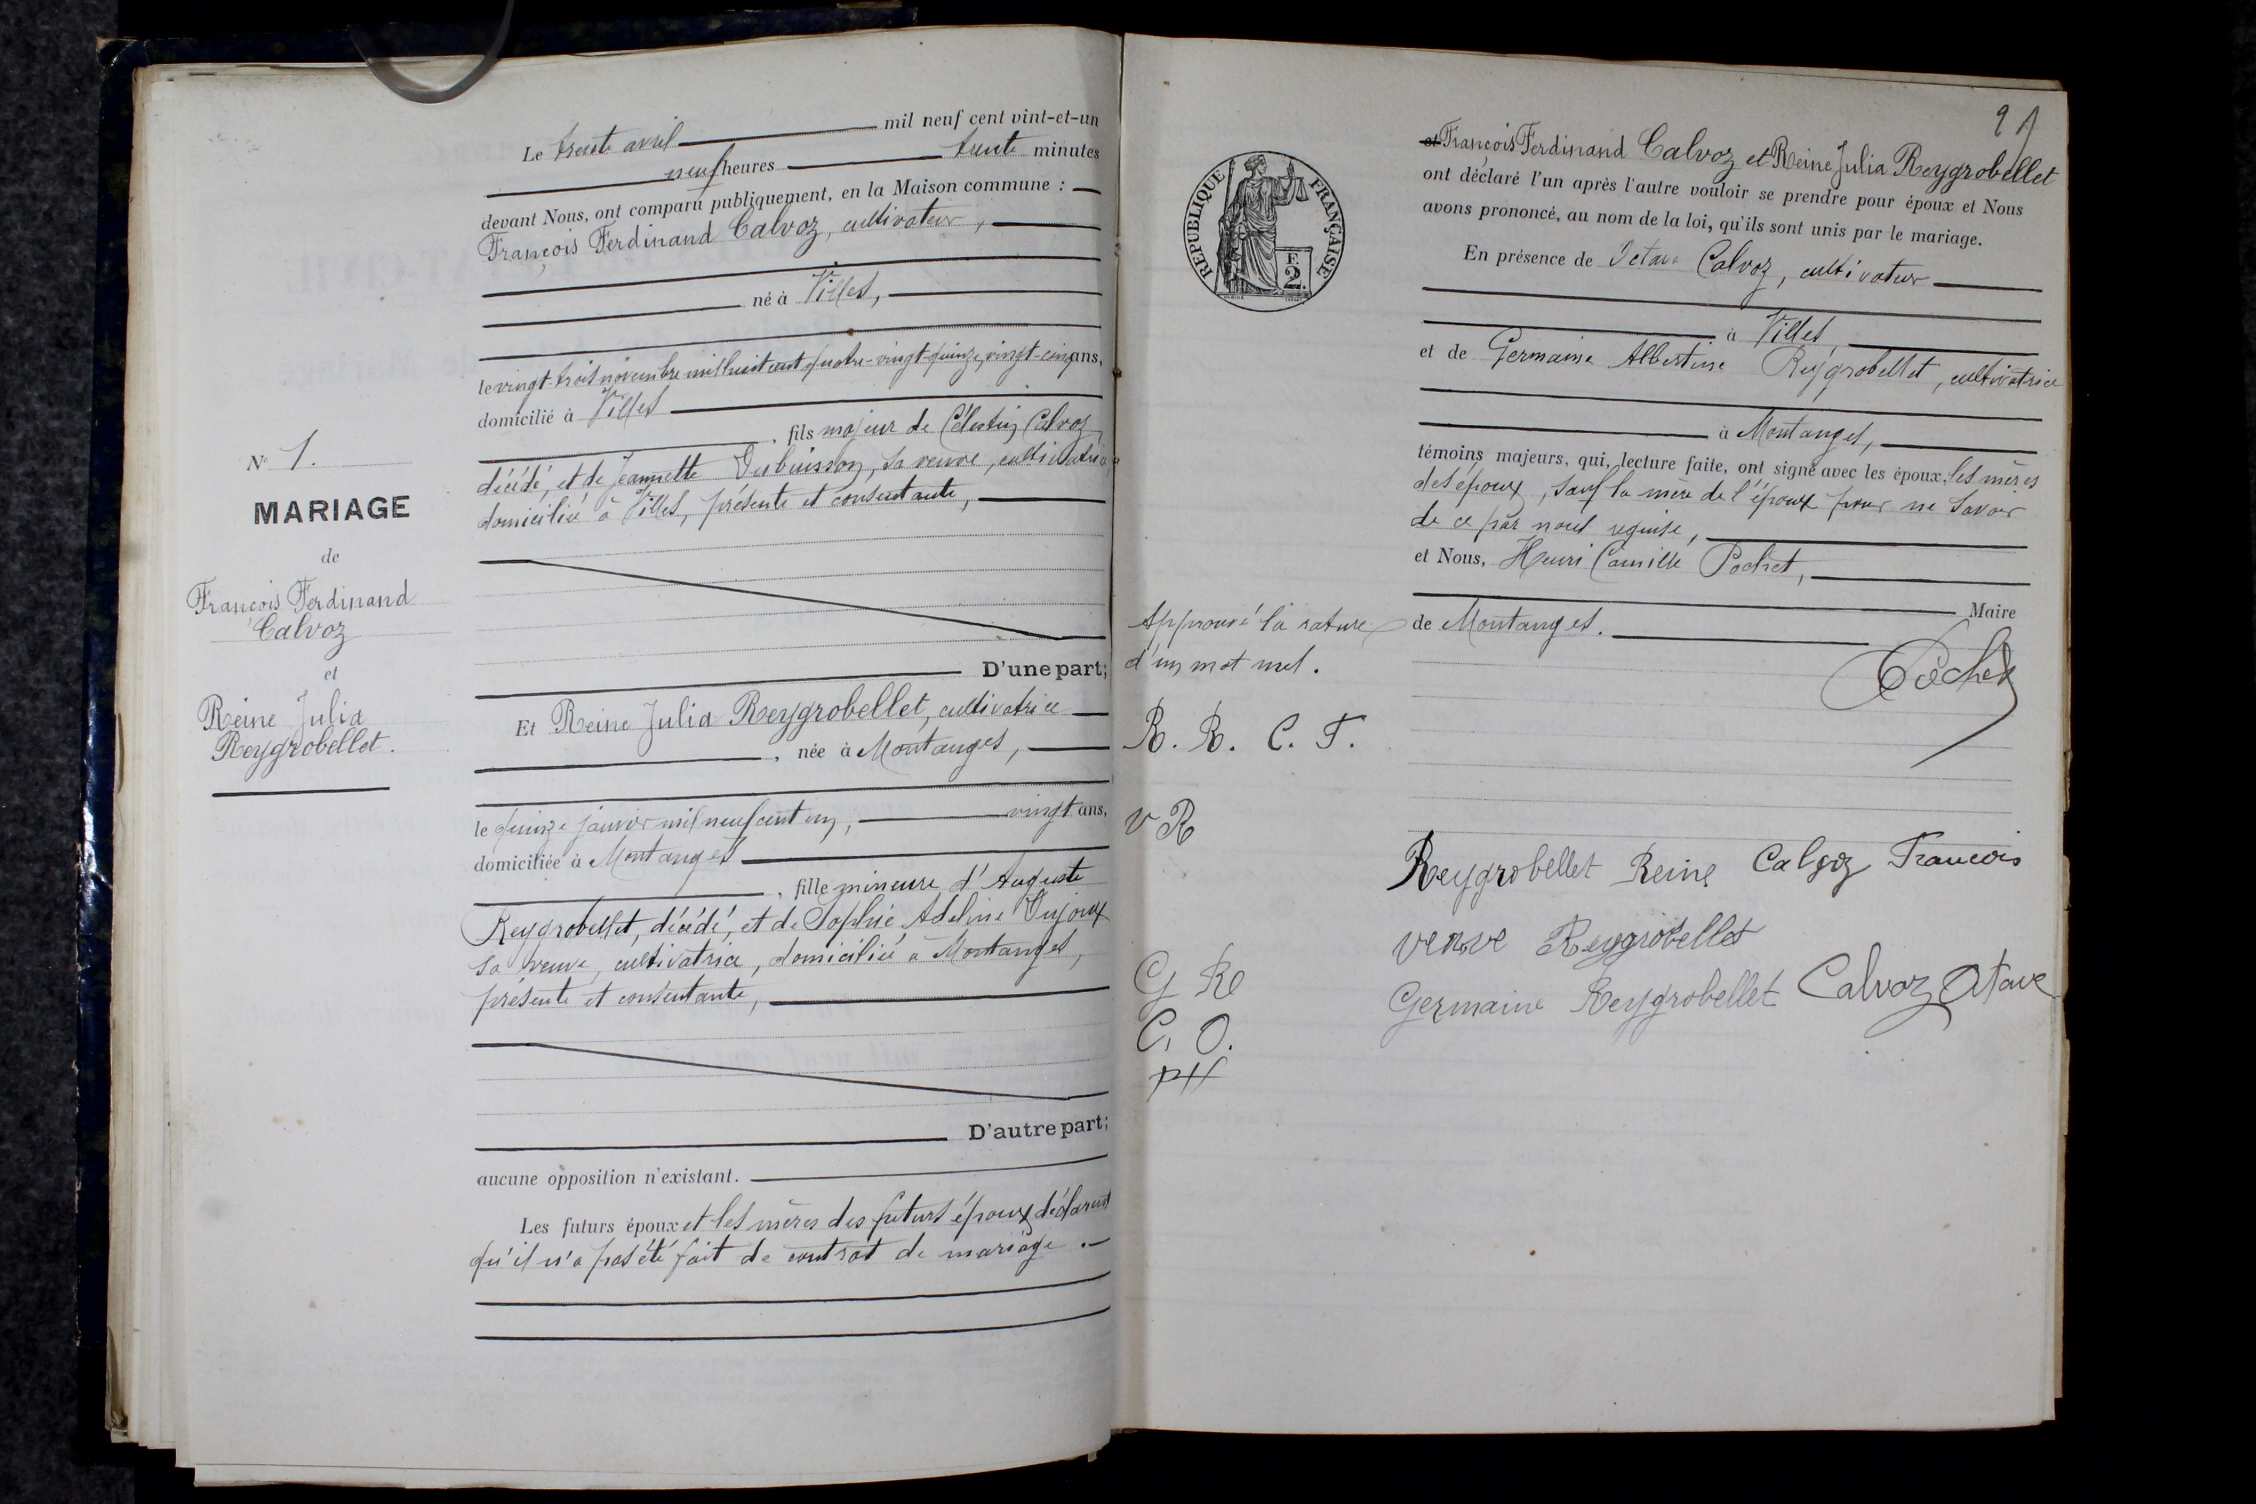 N° 1.
MARIAGE
de
François Ferdinand
Calvoz
et
Reine Julia
Reygrobellet.
Le trente avril mil neuf cent vint-et-un
neuf heures trente minutes
devant Nous, ont comparu publiquement, en la Maison commune :
François Ferdinand Calvoz, cultivateur,
né à Villes,
le vingt-trois novembre mil huit cent quatre-vingt-quinze, vingt-cinq ans,
domicilié à Villes
, fils majeur de Célestin Calvoz,
décédé, et de Jeannette Dubuisson, sa veuve, cultivatrice
domiciliée à Villes, présente et consentante,
D'une part;
Et Reine Julia Reygrobellet, cultivatrice
, née à Montanges,
le quinze janvier mil neuf cent un, vingt ans,
domiciliée à Montanges
, fille mineure d'Auguste
Reygrobellet, décédé, et de Sophie Adeline Dujoux
sa veuve, cultivatrice, domiciliée à Montanges,
présente et consentante,
D'autre part;
aucune opposition n'existant.
Les futurs époux et les mères des futurs époux déclarent
qu'il n'a pas été fait de contrat de mariage.
91
REPUBLIQUE FRANÇAISE
F.
2.
et François Ferdinand Calvoz et Reine Julia Reygrobellet
ont déclaré l'un après l'autre vouloir se prendre pour époux et Nous
avons prononcé, au nom de la loi, qu'ils sont unis par le mariage.
En présence de Octave Calvoz, cultivateur
à Villes,
et de Germaine Albertine Reygrobellet, cultivatrice
à Montanges,
témoins majeurs, qui, lecture faite, ont signé avec les époux, les mères
des époux, sauf la mère de l'époux pour ne savoir
de ce par nous requise,
et Nous, Henri Camille Pochet,
Maire
de Montanges.
Approuvé la rature
d'un mot nul.
Pochet
R. R. C. F.
v R
Reygrobellet Reine Calvoz Francois
veuve Reygrobellet
G Re
Germaine Reygrobellet Calvoz Otave
C, O.
PH